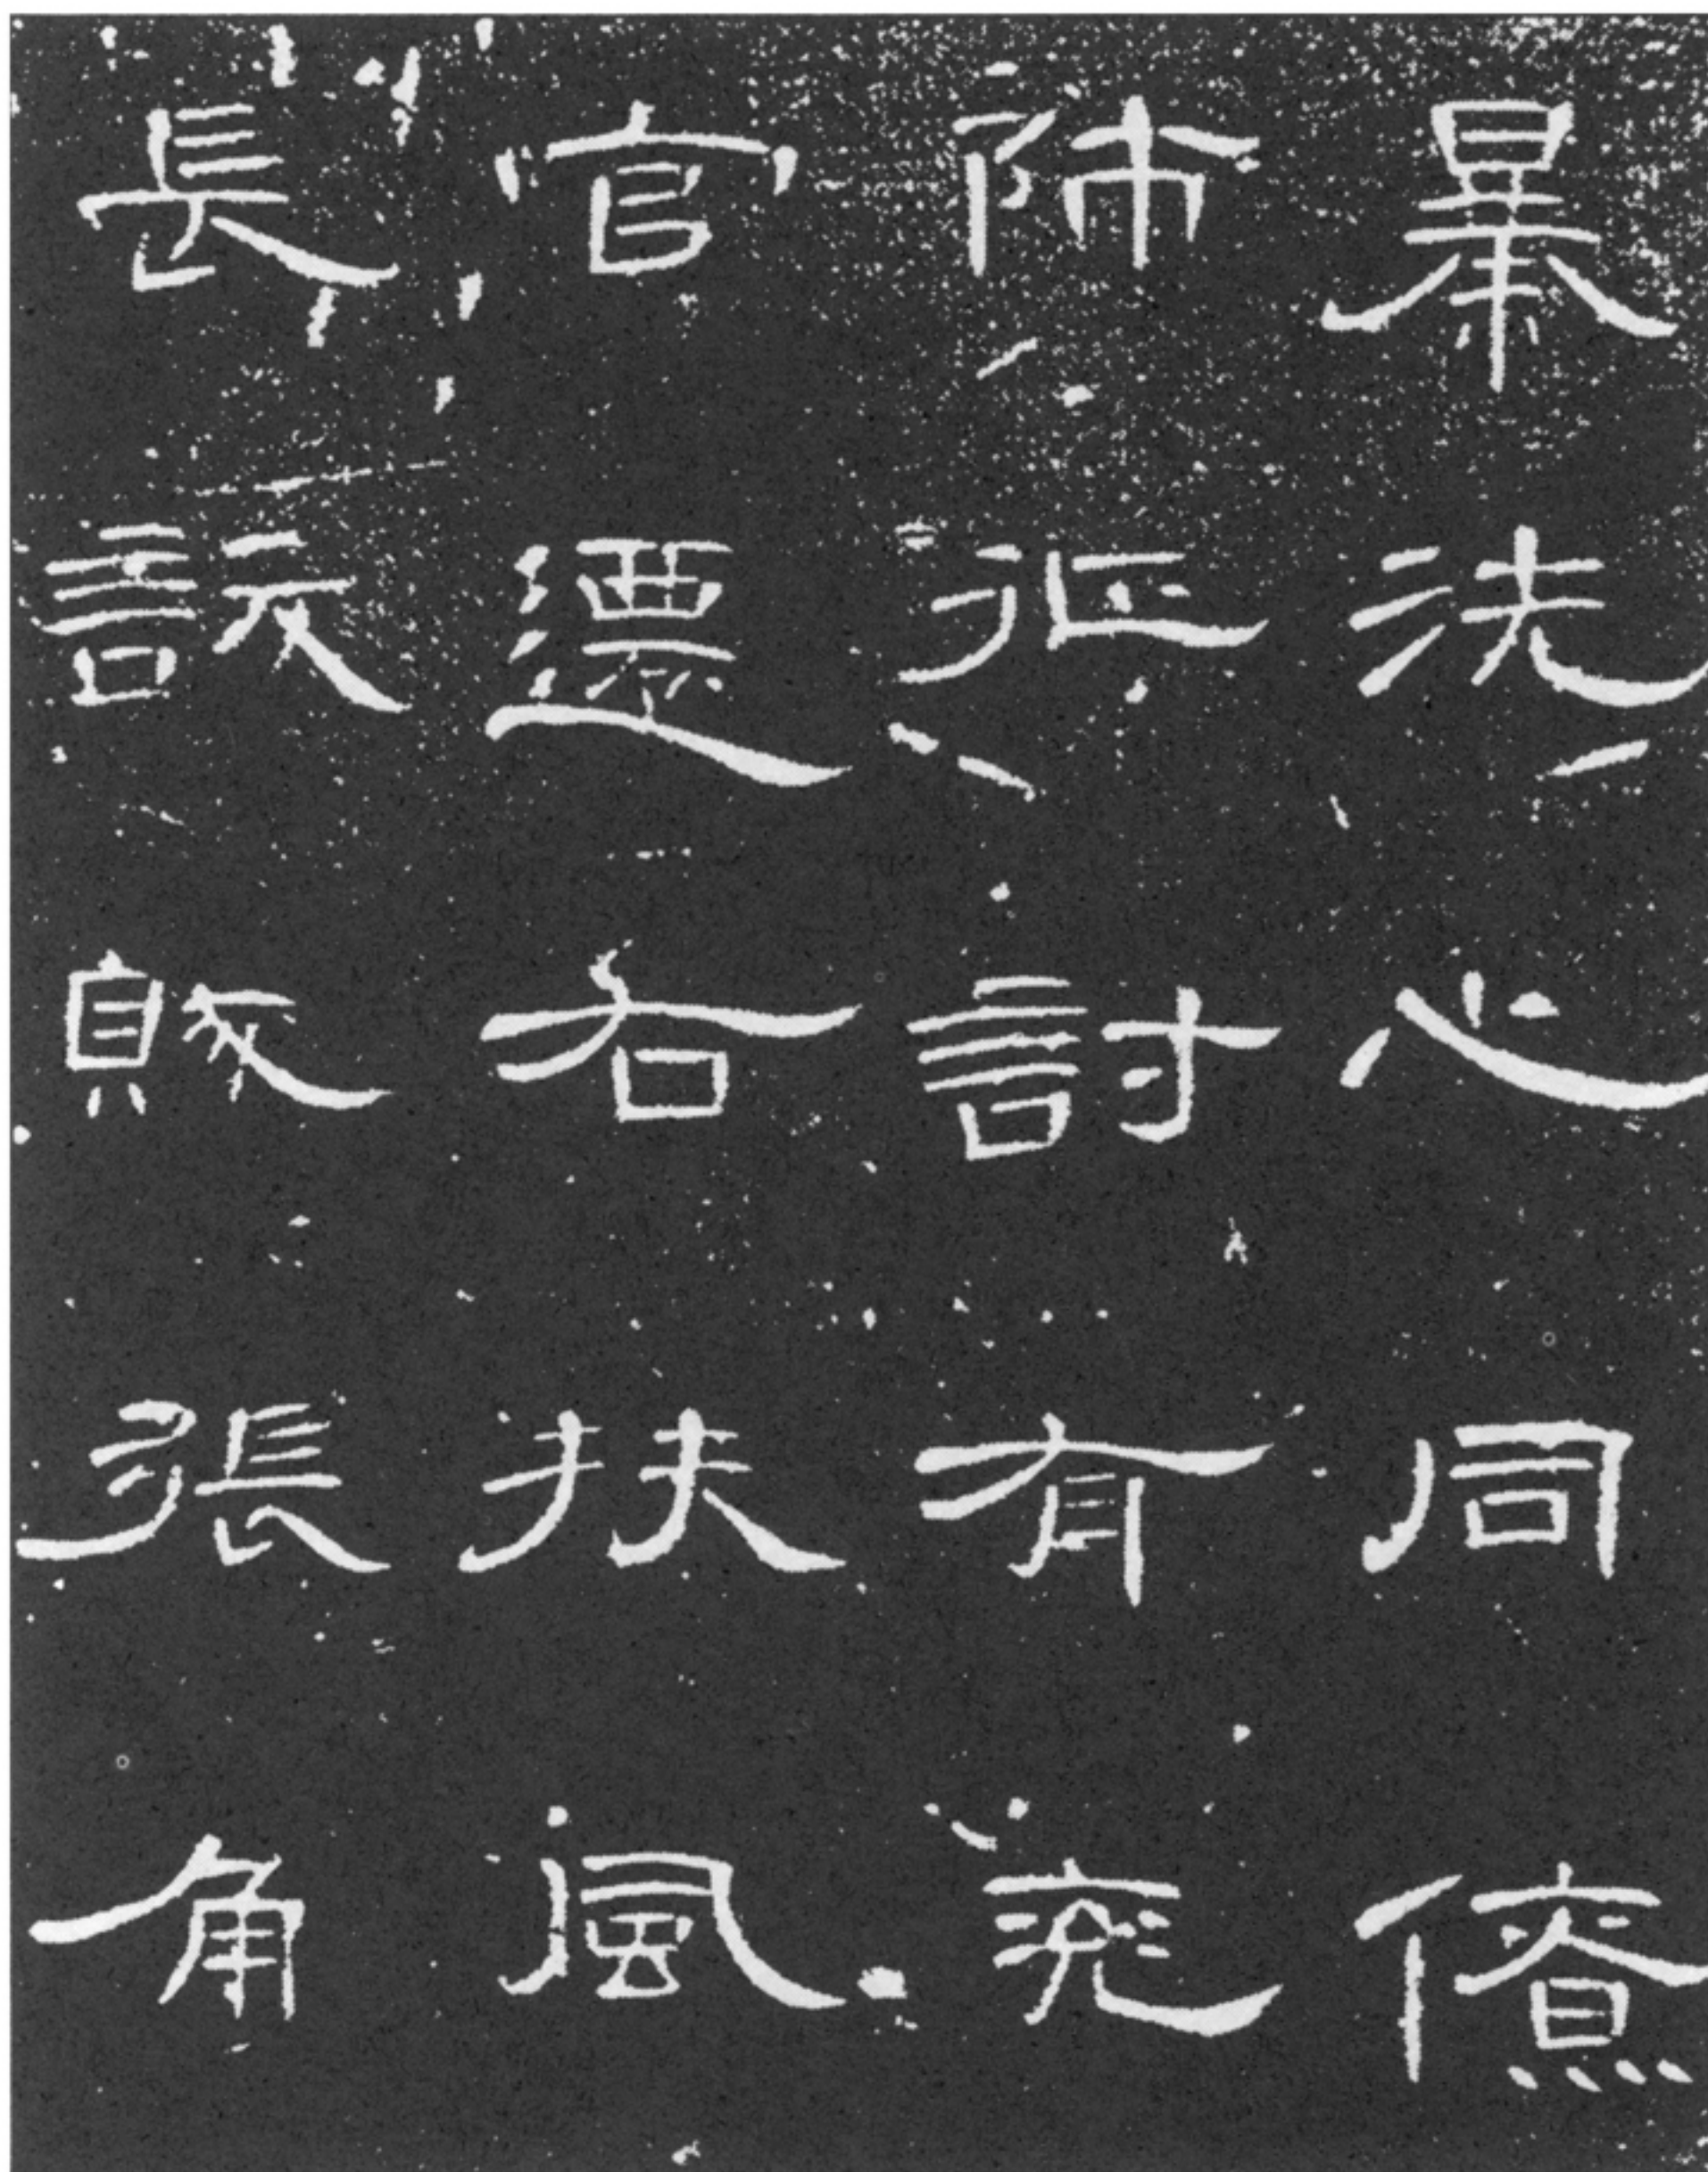 暴洗心同僚
師征討有兗
官遷右扶風
長訞賊張角